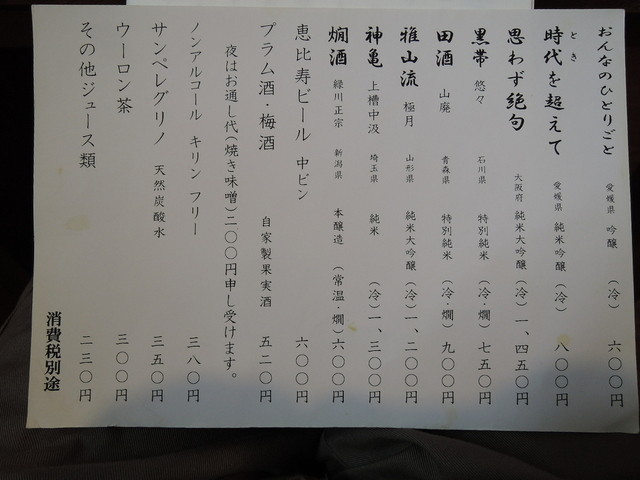 おんなのひとりごと 愛媛県 吟醸 (冷) 六〇〇円
時代を超えて 愛媛県 純米吟醸 (冷) 八〇〇円
とき
思わず絶句 大阪府 純米大吟醸 (冷) 一、四五〇円
黒帯 悠々 石川県 特別純米 (冷・燗) 七五〇円
田酒 山廃 青森県 特別純米 (冷・燗) 九〇〇円
雅山流 極月 山形県 純米大吟醸 (冷) 一、二〇〇円
神亀 上槽中汲 埼玉県 純米 (冷) 一、三〇〇円
燗酒 緑川正宗 新潟県 本醸造 (常温・燗) 六〇〇円
恵比寿ビール 中ビン 六〇〇円
プラム酒・梅酒 自家製果実酒 五二〇円
夜はお通し代(焼き味噌)二〇〇円申し受けます。
ノンアルコール キリン フリー 三八〇円
サンペレグリノ 天然炭酸水 三五〇円
ウーロン茶 三〇〇円
その他ジュース類 二三〇円
消費税別途